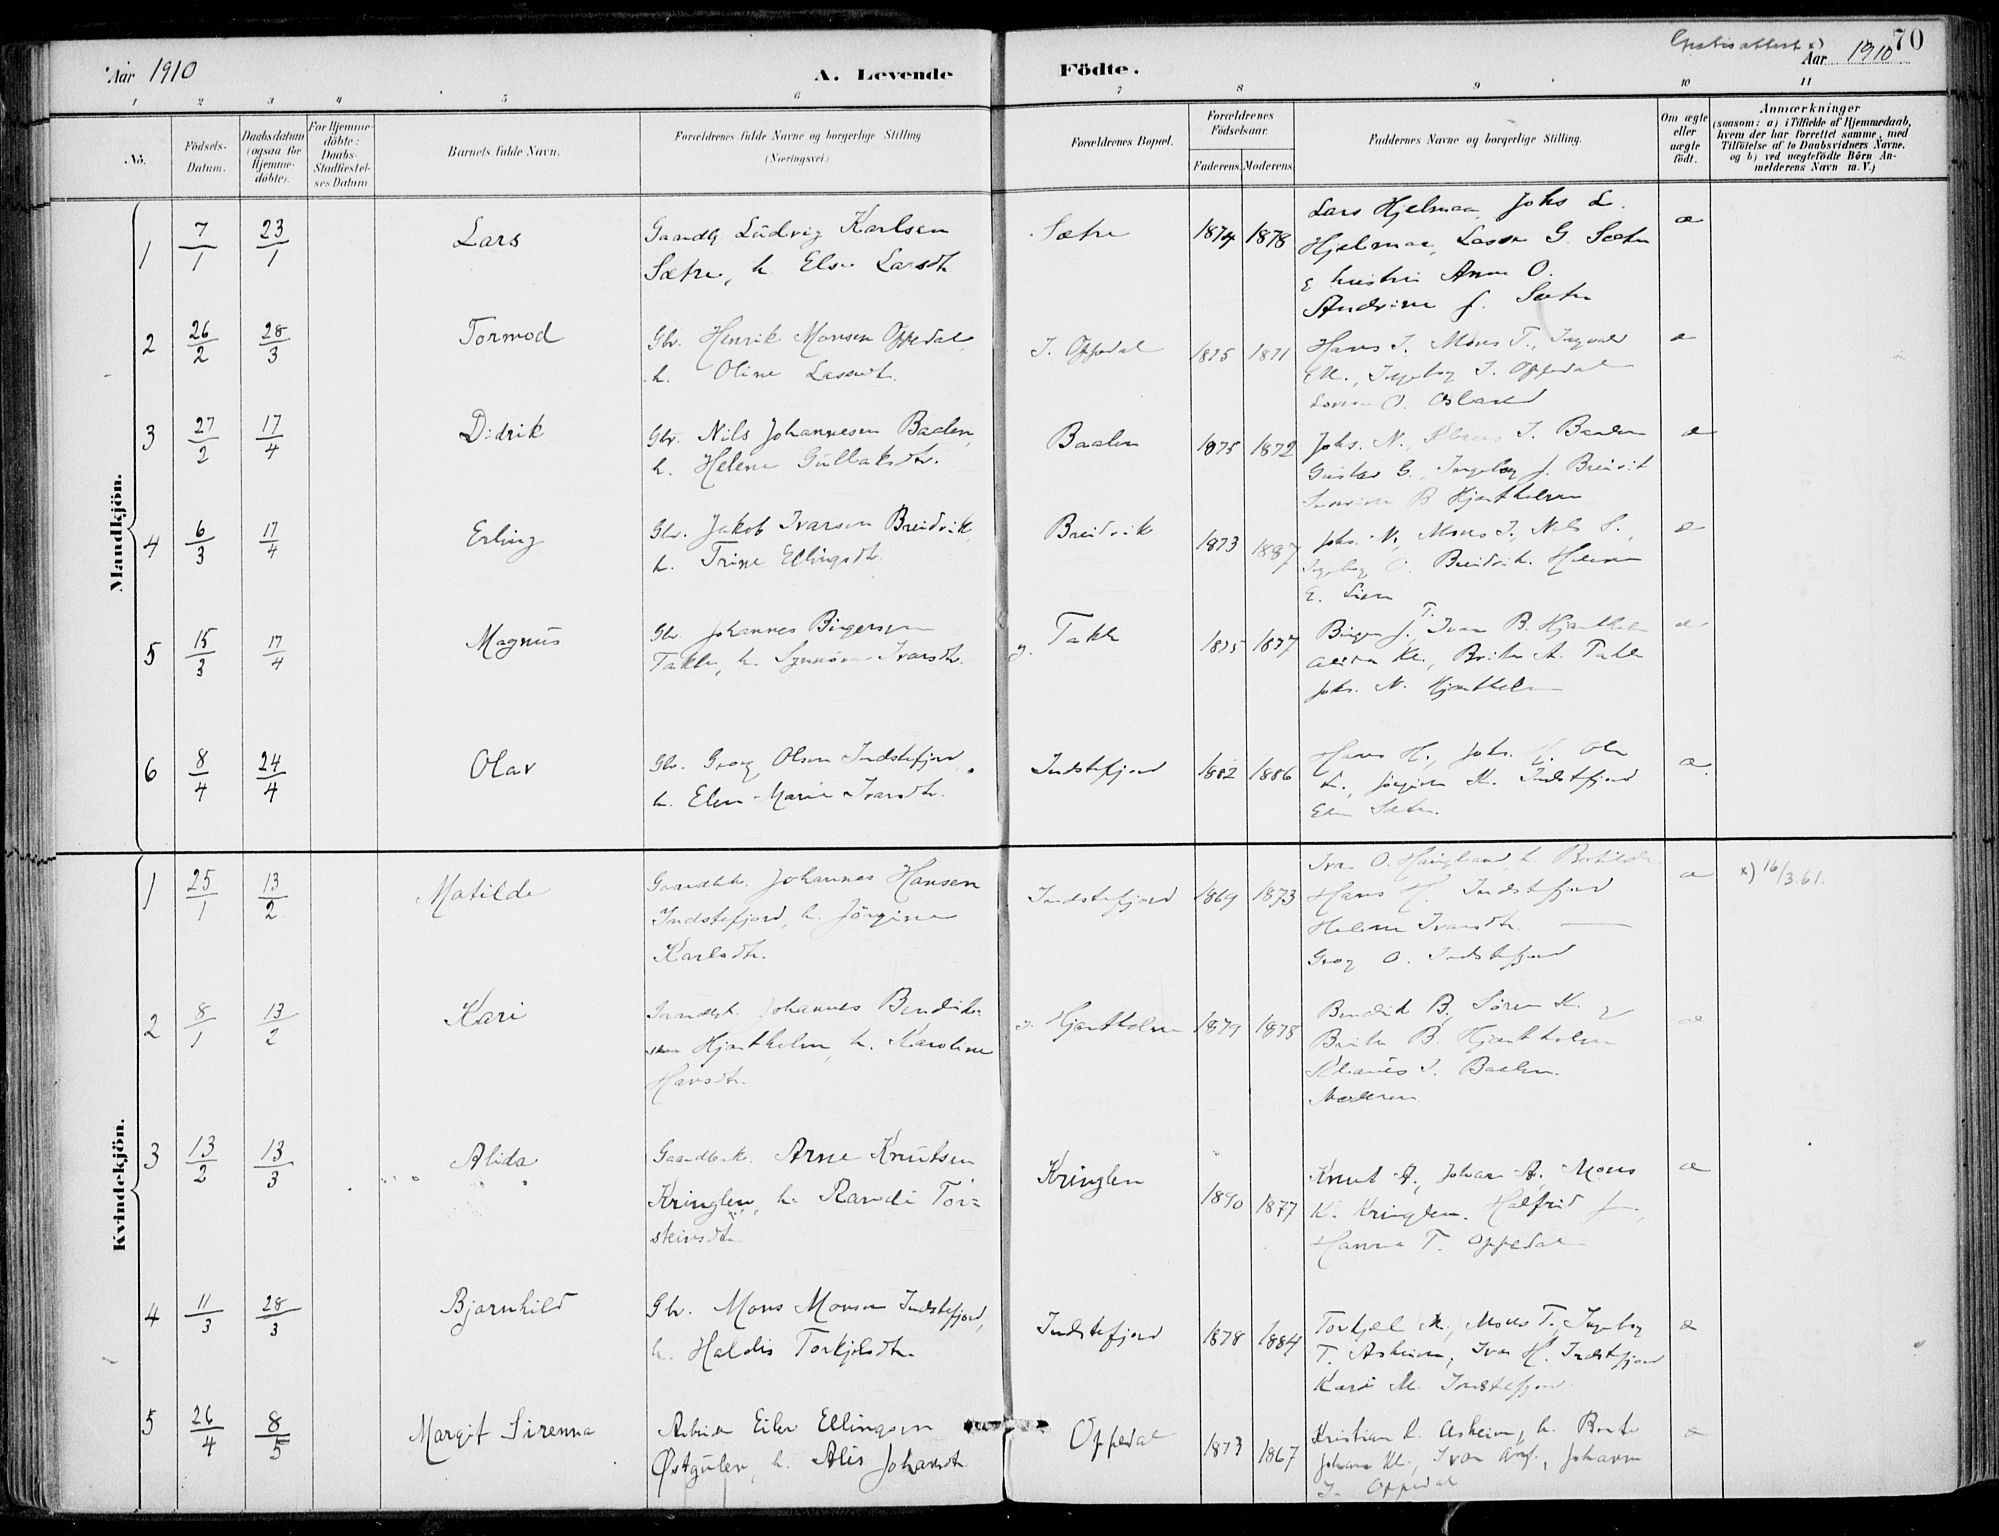 Aar 1910
A. Levende Födte.
Gratisattest x)
Aar 1910
70
1 2 3 4 5 6 7 8 9 10 11
No.
Födsels-Datum.
Daabsdatum (ogsaa for Hjemme-döbte).
For Hjemme-döbte: Daabs-Stadfæstel-ses Datum
Barnets fulde Navn.
Forældrenes fulde Navne og borgerlige Stilling (Næringsvei.)
Forældrenes Bopæl.
Forældrenes Födselsaar.
Faderens. Moderens.
Faddernes Navne og borgerlige Stilling.
Om ægte eller uægte födt.
Anmærkninger
(saasom: a) i Tilfælde af Hjemmedaab,
hvem der har forrettet samme, med
Tilföielse af to Daabsvidners Navne,
og b) ved uægtefödte Börn An-
melderens Navn m. V.)
Mandkjön.
1 7/1 23/1 Lars Gaardbr. Ludvig Karlsen Sætre 1874 1878 Lars Hjelmaa, Johs L. æ
Sætre, h. Else Larsdtr. Hjelmaa, Lasse G. Sætre
hustru Anne O.
Andrine J. Sætre
2 26/2 28/3 Tormod Gbr. Henrik Monsen Oppedal, I. Oppedal 1875 1871 Hans I. Mons T., Ingvald æ
h. Oline Lassedtr. M., Ingeborg I. Oppedal
O. Osland
3 27/2 17/4 Didrik Gbr. Nils Johannesen Baalen, Baalen 1875 1872 Johs. N., Klaus I. Baalen æ
h. Helene Gullaksdtr. Gustav G., Ingeborg J. Breidvik
B. Hjartholm
4 6/3 17/4 Erling Gbr. Jakob Ivarsen Breidvik, Breidvik 1873 1887 Johs. N., Mons I., Nils S., æ
h. Trine Ellingsdtr. Ingeborg O. Breidvik. Helene
E. Lien
5 15/3 17/4 Magnus Gbr. Johannes Birgersen y. Takle 1875 1877 Birger J. T. Ivar B. Hjartholm æ
Takle, h. Synnøve Ivarsdtr. Kl., Brite A. Takle
Johs. N. Hjartholm
6 8/4 24/4 Olav Gbr. Georg Olsen Indstefjord, Indstefjord 1882 1886 Hans H., Johs. H. Ole æ
h. Elen Marie Ivarsdtr. L., Jørgine K. Indstefjord
Elen Sætre.
Kvindekjön.
1 25/1 13/2 Matilde Gaardbr. Johannes Hansen Indstefjord 1869 1873 Ivar O. Haugland, h. Bertilde æ x) 16/3.61.
Indstefjord, h. Jörgine Hans H. Indstefjord
Karlsdtr. Helene Ivarsdtr. —
Georg O. Indstefjord
2 8/1 13/2 Kari Gaardbr. Johannes Bendiks- y. Hjartholm 1879 1878 Bendik B., Søren K. æ
sen Hjartholm, h. Karoline Brite B. Hjartholm
Hansdtr. Klaus I. Baalen.
Moderen
3 13/2 13/3 Alida Gaardbr. Arne Knutsen Kringlen 1890 1877 Knut A., Johan A., Mons æ
Kringlen, h. Randi Tor- K. Kringlen. Halfrid J.,
steinsdtr. Hanna T. Oppedal
4 11/3 28/3 Bjarnhild Gbr. Mons Monsen Indstefjord, Indstefjord 1878 1884 Torkjel M., Mons T., Ingeborg æ
h. Haldis Torkjelsdtr. T. Asheim, Ivar H. Indstefjord
Kari M. Indstefjord
5 26/4 8/5 Margit Sirenna Arbeider Eiler Ellingsen Oppedal 1873 1867 Kristian L. Asheim, h. Berte æ
Østgulen, h. Alis Johansdtr. Johan Kl., Ivar Arnf., Johanne
I. Oppedal